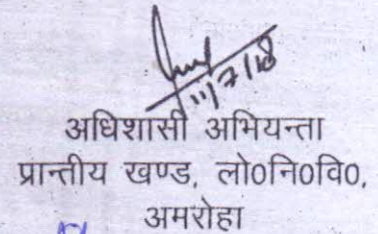 11/7/18
अधिशासी अभियन्ता
प्रान्तीय खण्ड, लो०नि०वि०,
अमरोहा